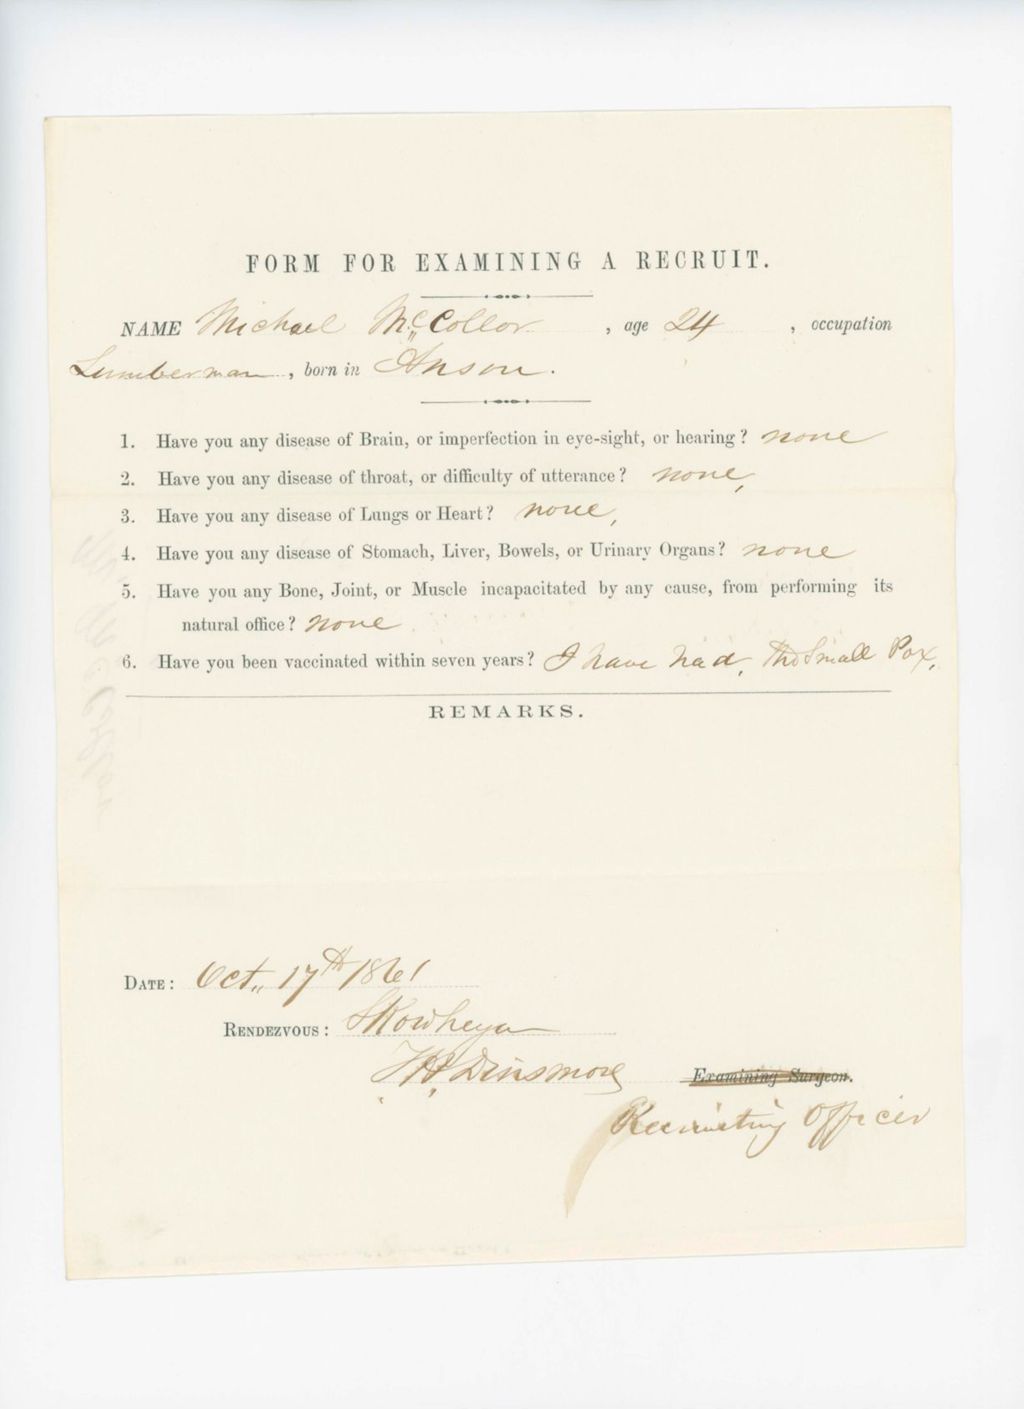 FORM FOR EXAMINING A RECRUIT.
NAME Michael McCollor, age 24, occupation
Lumberman, born in Anson.
1. Have you any disease of Brain, or imperfection in eye-sight, or hearing? none
2. Have you any disease of throat, or difficulty of utterance? none,
3. Have you any disease of Lungs or Heart? none,
4. Have you any disease of Stomach, Liver, Bowels, or Urinary Organs? none
5. Have you any Bone, Joint, or Muscle incapacitated by any cause, from performing its
natural office? none
6. Have you been vaccinated within seven years? I have had, the Small Pox,
REMARKS.
DATE: Oct,, 17th 1861
RENDEZVOUS: Skowhegan
Dinsmore Examining Surgeon.
Recruiting Officer